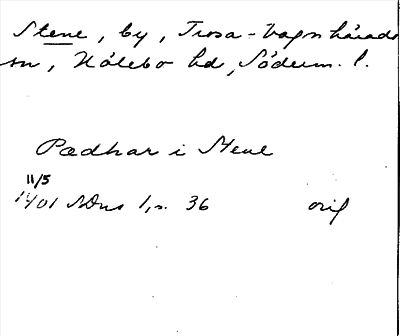 Stene, by, Trosa-Vagnhärads
sn, Hölebo hd, Söderm. l.
Pædhar i Stene
11/5
1401 SDns 1, s. 36 orig